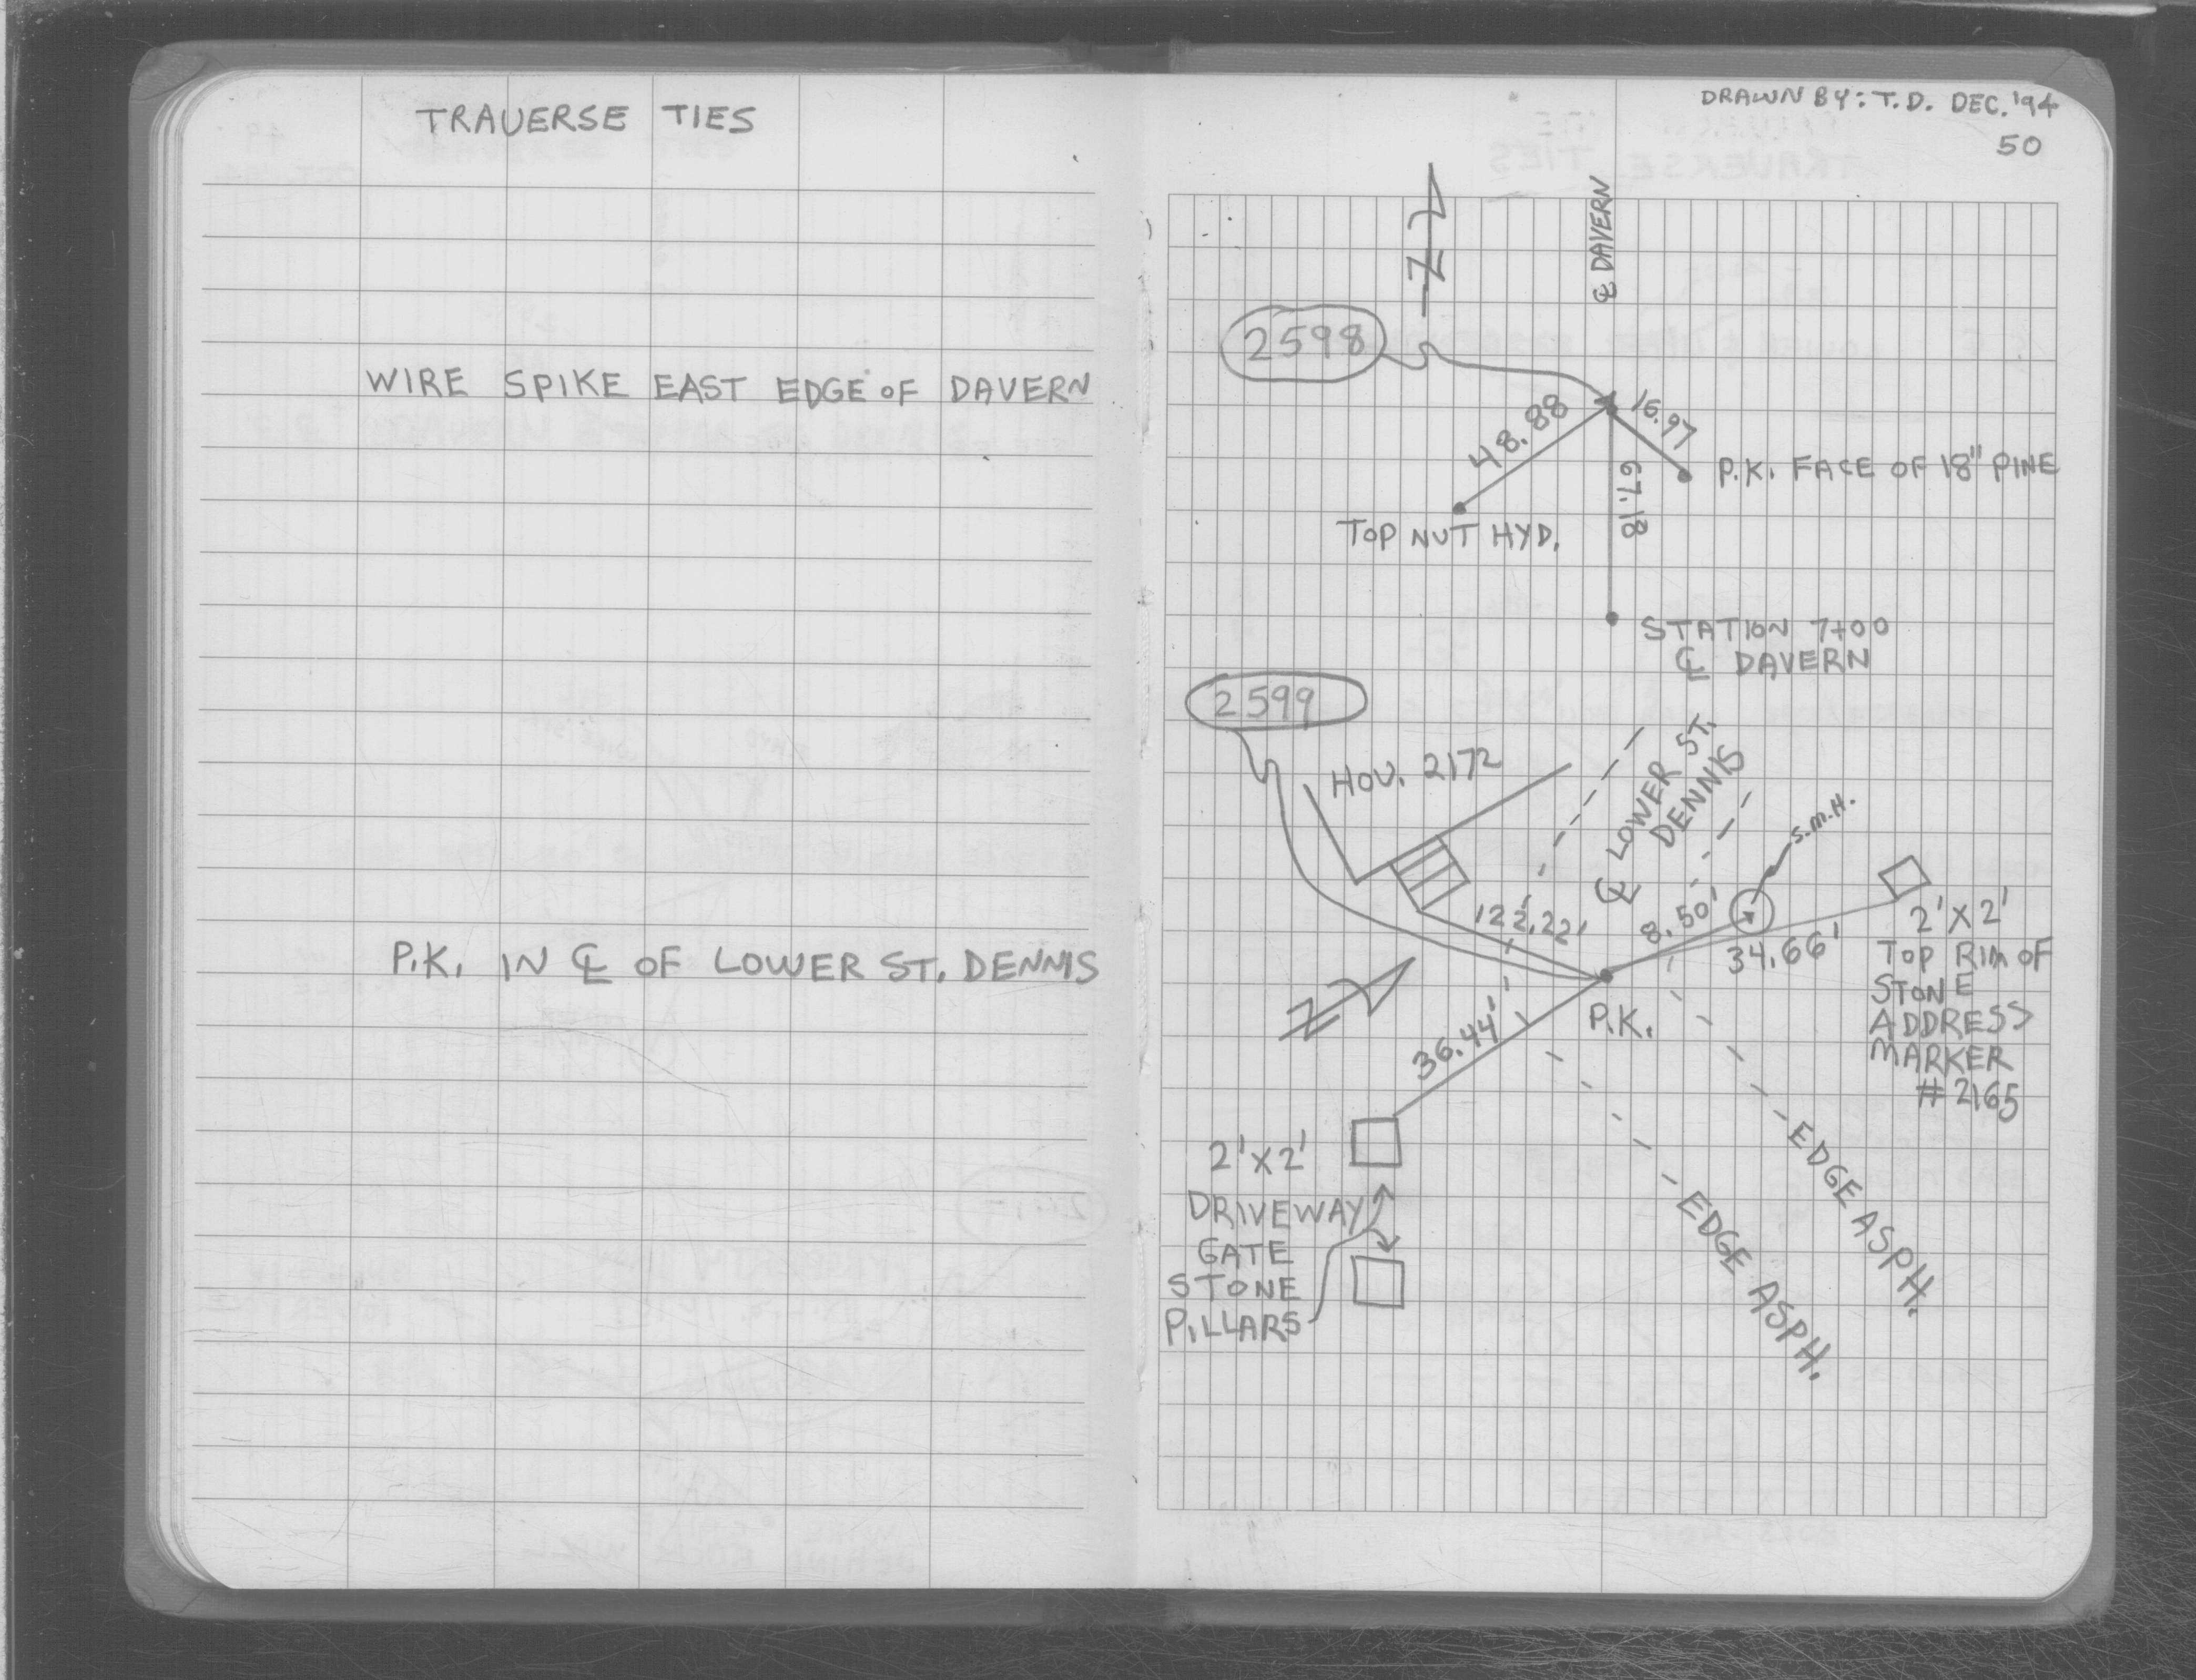 TRAVERSE TIES
WIRE SPIKE EAST EDGE OF DAVERN
P.K. IN ℄ OF LOWER ST. DENNIS
DRAWN BY: T.D. DEC. '94
50
N
℄ DAVERN
2598
48.88
16.97
67.18
P.K. FACE OF 18" PINE
TOP NUT HYD.
STATION 7+00
℄ DAVERN
2599
HOU. 2172
℄ LOWER ST.
DENNIS
S.M.H.
122.22'
8.50'
34.66'
2' X 2'
TOP RIM OF
STONE
ADDRESS
MARKER
# 2165
N
P.K.
36.44'
2' X 2'
DRIVEWAY
GATE
STONE
PILLARS
EDGE ASPH.
EDGE ASPH.